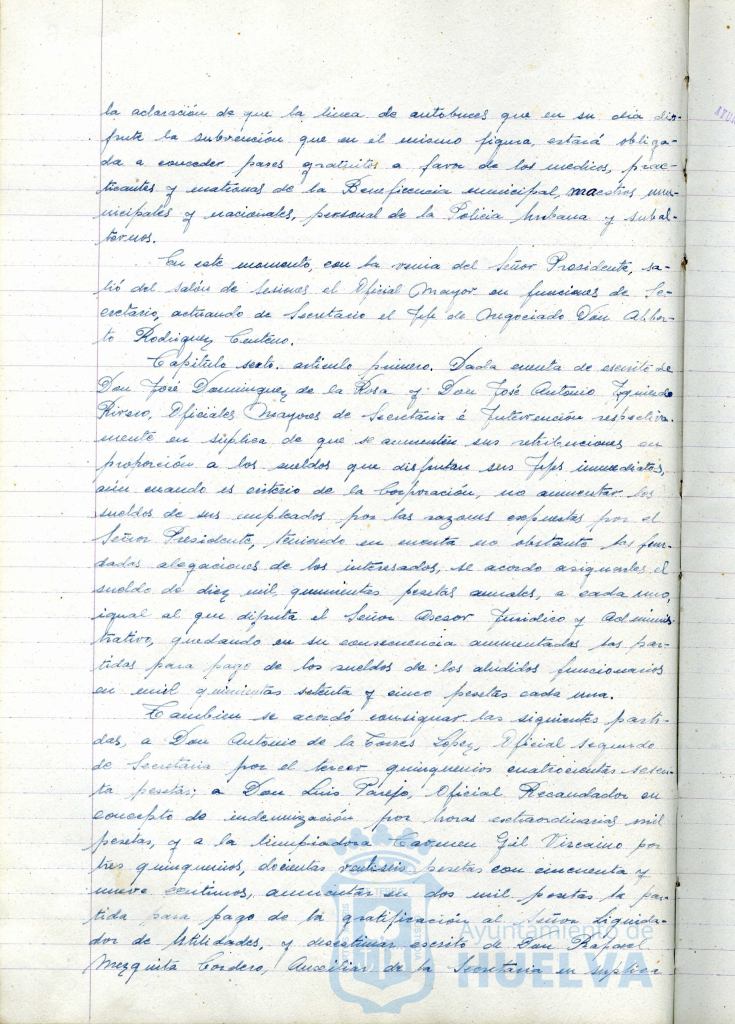 la aclaración de que la linea de autobuces que en su dia dis-
frute la subvención que en el mismo figura, estará obliga-
da a conceder pases gratuitos a favor de los medicos, prac-
ticantes y matronas de la Beneficencia municipal, maestros mu-
nicipales y nacionales, personal de la Policia Urbana y subal-
ternos.
En este momento, con la venia del Señor Presidente, sa-
lió del salón de Sesiones el Oficial Mayor en funciones de Se-
cretario, actuando de Secretario el Jefe de Negociado Don Alber-
to Rodriguez Centeno.
Capitulo sexto. articulo primero. Dada cuenta de escrito de
Don José Dominguez de la Rosa y Don José Antonio Izquierdo
Rivero, Oficiales Mayores de Secretaria é Intervención respectiva-
mente en súplica de que se aumenten sus retribuciones en
proporción a los sueldos que disfrutan sus Jefes inmediatos,
aún cuando es criterio de la Corporación, no aumentar los
sueldos de sus empleados por las razones expuestas por el
Señor Presidente, teniendo en cuenta no obstante las fun-
dadas alegaciones de los interesados, se acordo asignarles el
sueldo de diez mil quinientas pesetas anuales, a cada uno,
igual al que disfruta el Señor Asesor Juridico y Adminis-
trativo, quedando en su consecuencia aumentadas las par-
tidas para pago de los sueldos de los aludidos funcionarios
en mil quinientas setenta y cinco pesetas cada una.
Tambien se acordó consignar las siguientes parti-
das, a Don Antonio de la Torres López, Oficial segundo
de Secretaria por el tercer quinquenio cuatrocientas sesen-
ta pesetas; a Don Luis Parejo, Oficial Recaudador en
concepto de indemnización por horas extraordinarias mil
pesetas, y a la limpiadora Carmen Gil Vizcaino por
tres quinquenios, docientas veintiseis pesetas con cincuenta y
nueve centimos, aumentar en dos mil pesetas la par-
tida para pago de la gratificación al Señor Liquida-
dor de Utilidades, y desestimar escrito de Don Rafael
Mezquita Cordero, Auxiliar de la Secretaria en suplica
Ayuntamiento de
HUELVA